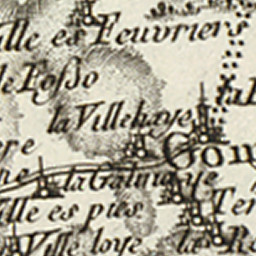 ille es Feuvriers
le Fosso
la Villehaye
Gom
la Galmaye
ille es pies
Ter
Ville loye
la Re